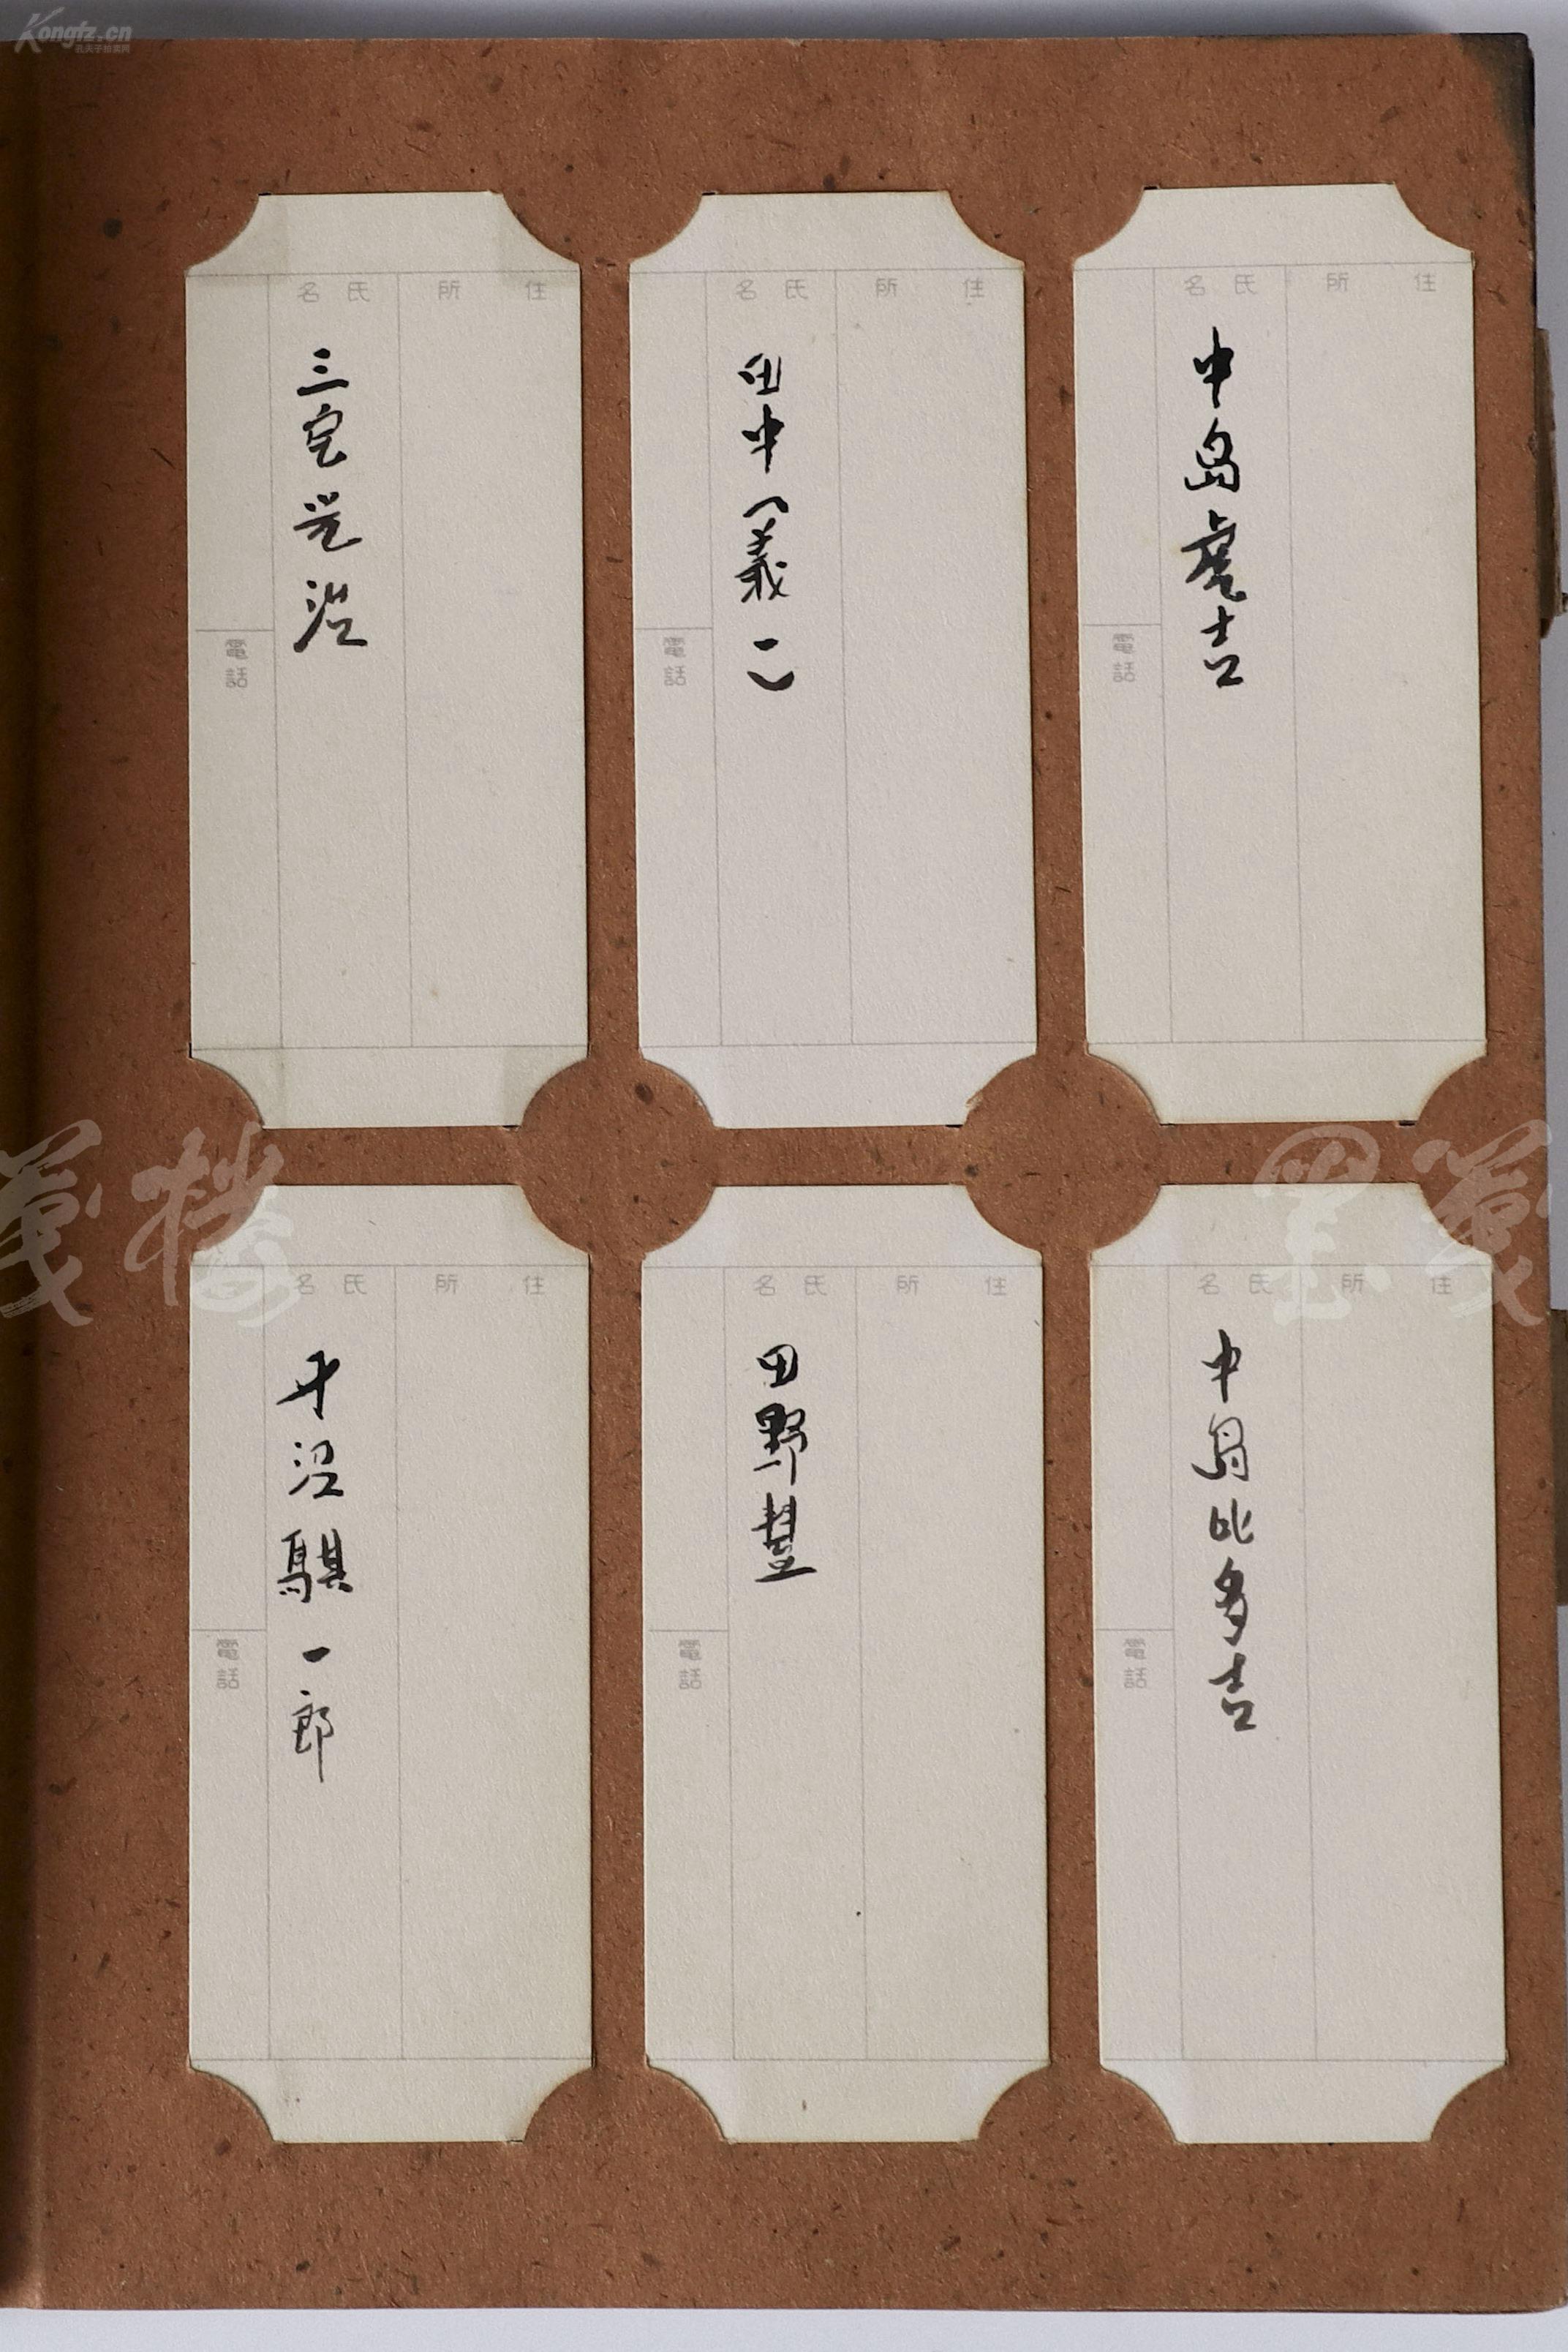 Kongfz.cn
孔夫子拍卖网
住所
氏名
中島虎吉
電話
住所
氏名
田中(義一)
電話
住所
氏名
三宅光治
電話
住所
氏名
中島比多吉
電話
住所
氏名
田野豐
電話
住所
氏名
平沼騏一郎
電話
墨箋
箋樓